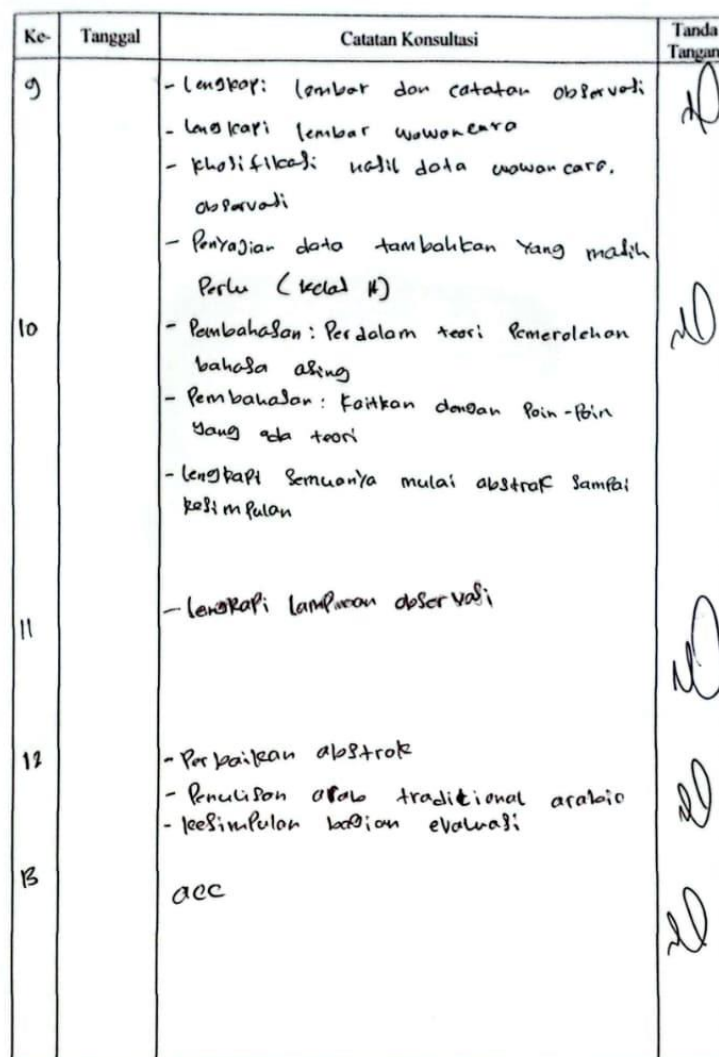 Ke- Tanggal Catatan Konsultasi Tanda Tangan
9 - Lengkapi lembar dan catatan observasi
- Lengkapi lembar wawancara
- Khosifikasi hasil data wawancara,
observasi
- Penyajian data tambahkan yang masih
Perlu (kelas
10 - Pembahasan: Perdalam teori Pemerolehan
bahasa asing
- Pembahasan: Kaitkan dengan Poin-Poin
yang ada teori
- Lengkapi Semuanya mulai abstrak Sampai
kesimpulan
11 - Lengkapi Lampiran observasi
12 - Perbaikan abstrak
- Penulisan arab traditional arabic
- kesimpulan bagian evaluasi
13 acc